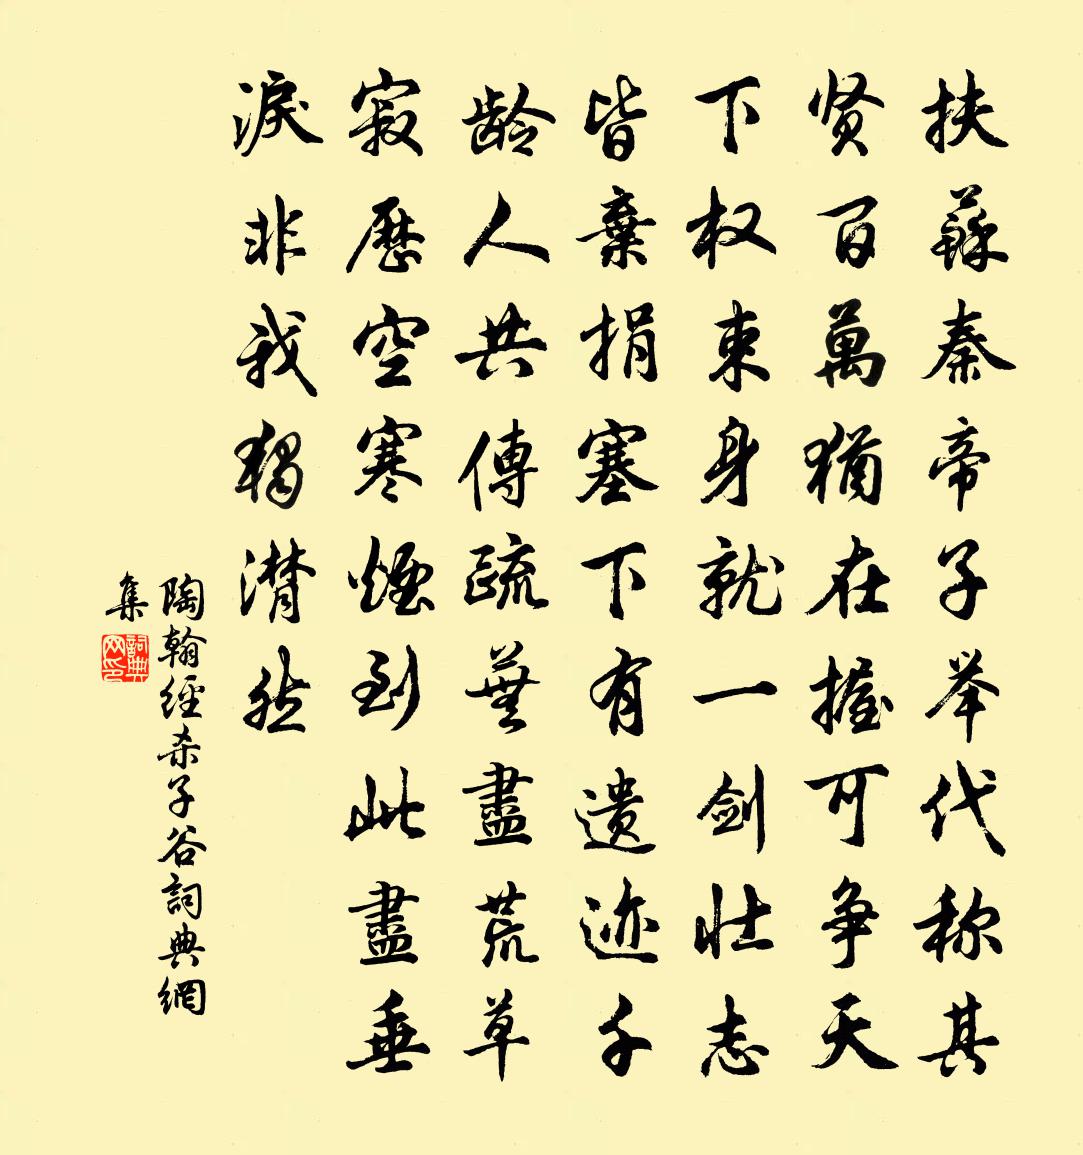 扶蘇秦帝子举代称其
贤百萬猶在握可争天
下权束身就一剑壮志
皆棄捐塞下有遗迹千
龄人共傳疏蕪盡荒草
寂歷空寒煙到此盡垂
淚非我獨潸然
陶翰經杀子谷詞典網
集
詞典
网印